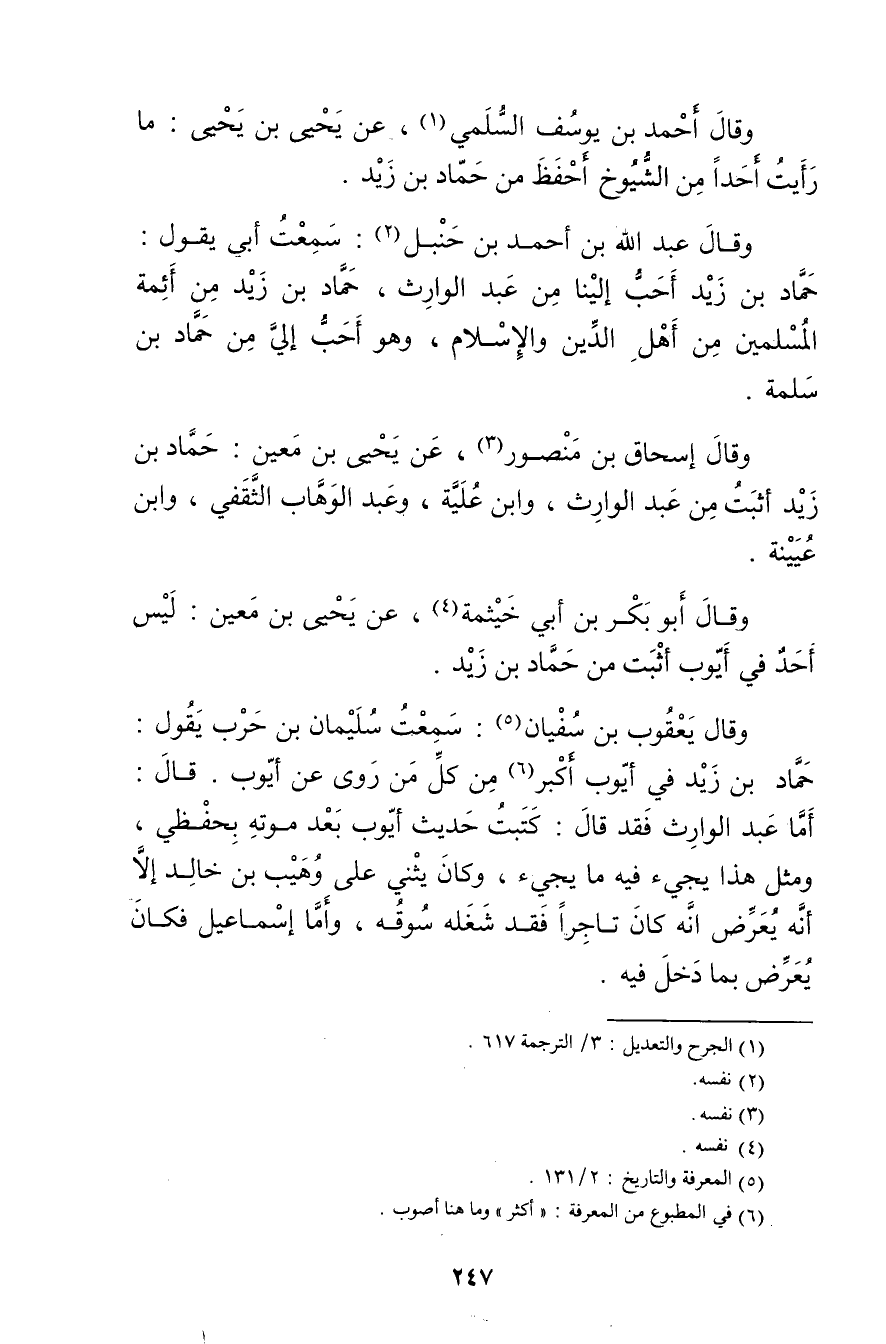 وقالَ أَحْمد بن يوسُف السُّلَمي(١) ، عن يَحْيى بن يَحْيى : ما
رَأَيتُ أَحَداً مِن الشُّيُوخ أَحْفَظَ من حَمّاد بن زَيْد .
وقـالَ عبد الله بن أحمـد بن حَنْبـل(٢) : سَمِعْتُ أبي يقـول :
حَمَّاد بن زَيْد أَحَبُّ إلَيْنا مِن عَبد الوارِث ، حَمَّاد بن زَيْد مِن أَئِمة
المُسْلمين مِن أَهْلِ الدِّين والإِسْـلام ، وهو أَحَبُّ إليَّ مِن حَمَّاد بن
سَلمة .
وقالَ إسحاق بن مَنْصـور(٣) ، عَن يَحْيى بن مَعين : حَمَّاد بن
زَيْد أثبَتُ مِن عَبد الوارِث ، وابن عُلَيَّة ، وعَبد الوَهَّاب الثَّقَفي ، وابن
عُيَيْنة .
وقـالَ أَبو بَكْـر بن أبي خَيْثمة(٤) ، عن يَحْيى بن مَعين : لَيْس
أَحَدٌ في أَيّوب أثْبَت من حَمَّاد بن زَيْد .
وقال يَعْقُوب بن سُفْيان(٥) : سَمِعْتُ سُلَيْمان بن حَرْب يَقُول :
حَمَّاد بن زَيْد في أيّوب أَكْبر(٦) مِن كلِّ مَن رَوى عن أيّوب . قـالَ :
أَمَّا عَبد الوارِث فَقد قالَ : كَتَبتُ حَديث أيّوب بَعْد مـوتهِ بِحفْـظي ،
ومثل هذا يجيء فيه ما يجيء ، وكانَ يثْني على وُهَيْب بن خالِـد إلاَّ
أنَّه يُعَرِّض انَّه كانَ تـاجِراً فَقـد شَغَله سُوقُـه ، وأَمَّا إسْمـاعيل فكـانَ
يُعَرِّض بما دَخلَ فيه .
(١) الجرح والتعديل : ٣/ الترجمة ٦١٧ .
(٢) نفسه.
(٣) نفسه .
(٤) نفسه .
(٥) المعرفة والتاريخ : ٢/ ١٣١ .
(٦) في المطبوع من المعرفة : « أكثر » وما هنا أصوب .
٢٤٧